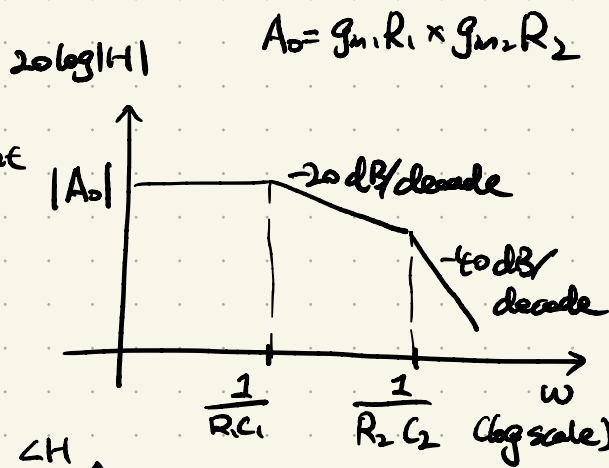 A₀ = gm₁R₁ × gm₂R₂
20log|H|
|A₀|
-20 dB/decade
-40 dB/
decade
1/R₁C₁
1/R₂C₂
ω
(log scale)
∠H